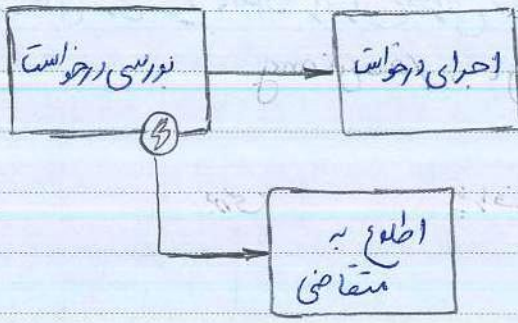 بررسی درخواست
اجرای درخواست
اطلاع به
متقاضی